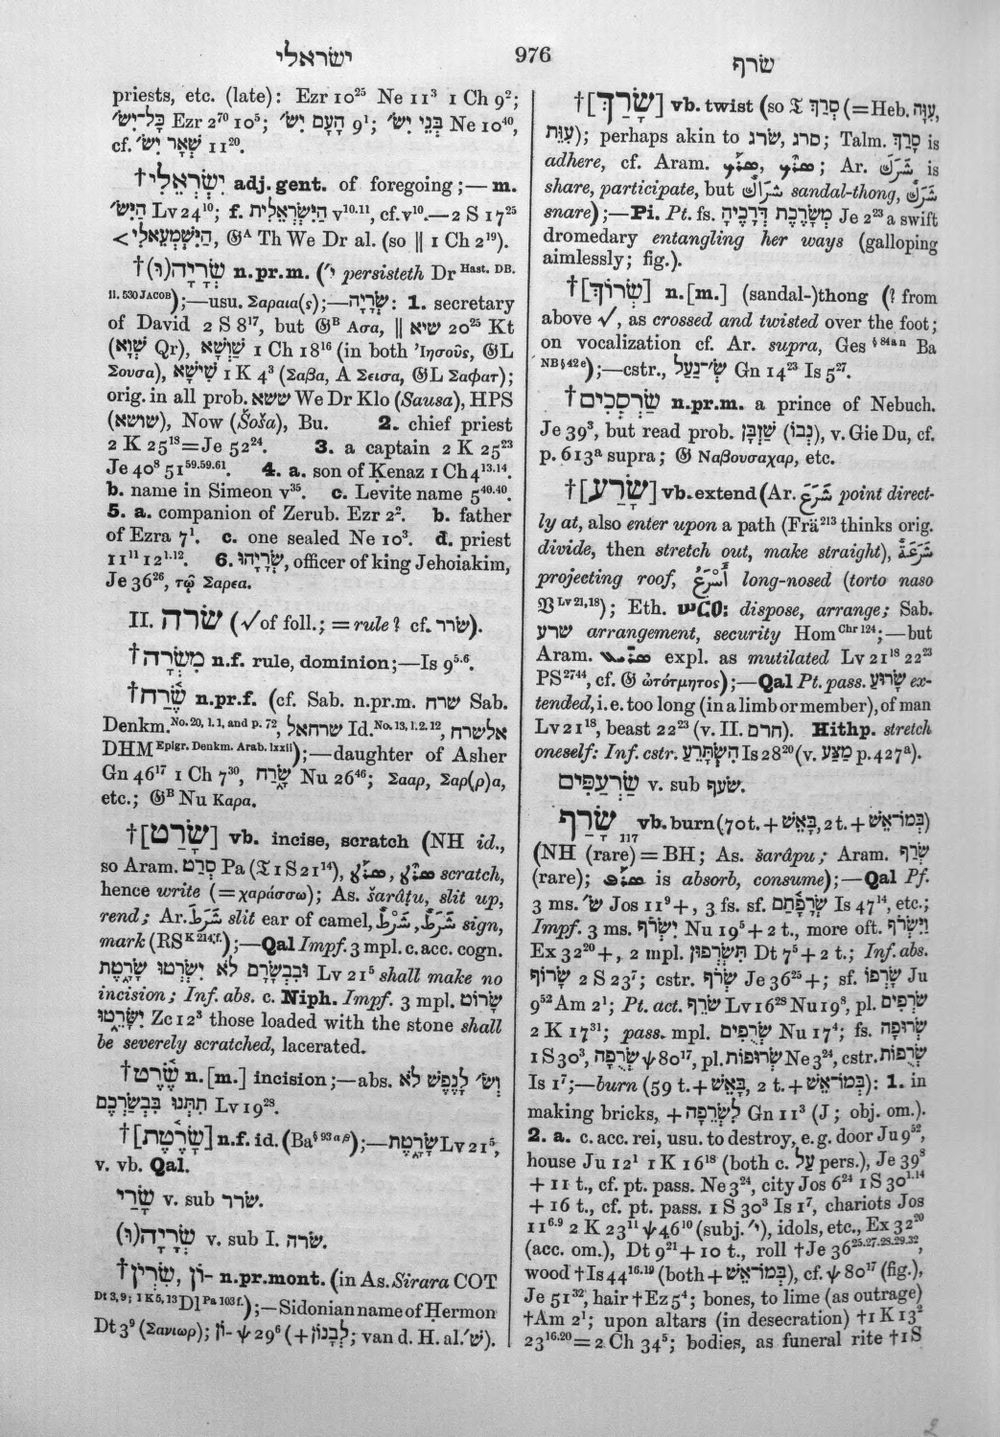 ישׂראלי
976
שׂרף
priests, etc. (late): Ezr 10²⁵ Ne 11³ 1 Ch 9²;
כָּל־יִשׂ׳ Ezr 2⁷⁰ 10⁵; הָעָם יִשׂ׳ 9¹; בְּנֵי יִשׂ׳ Ne 10⁴⁰,
cf. שְׁאָר יִשׂ׳ 11²⁰.
†יִשְׂרְאֵלִי adj. gent. of foregoing;—m.
הַיִּשׂ׳ Lv 24¹⁰; f. הַיִּשְׂרְאֵלִית v¹⁰·¹¹, cf. v¹⁰.—2 S 17²⁵
< הַיִּשְׁמְעֵאלִי, 𝔊ᴬ Th We Dr al. (so ‖ 1 Ch 2¹⁹).
†שְׂרָיָה(וּ) n.pr.m. (י׳ persisteth Dr Hast. DB.
ii. 530 JACOB);—usu. Σαραια(ς);—שְׂרָיָה: 1. secretary
of David 2 S 8¹⁷, but 𝔊ᴮ Ασα, ‖ שיא 20²⁵ Kt
(שְׁוָא Qr), שַׁוְשָׁא 1 Ch 18¹⁶ (in both Ἰησοῦς, 𝔊L
Σουσα), שִׁישָׁא 1 K 4³ (Σαβα, A Σεισα, 𝔊L Σαφατ);
orig. in all prob. ששא We Dr Klo (Sausa), HPS
(שושא), Now (Šoša), Bu. 2. chief priest
2 K 25¹⁸=Je 52²⁴. 3. a captain 2 K 25²³
Je 40⁸ 51⁵⁹·⁵⁹·⁶¹. 4. a. son of Ḳenaz 1 Ch 4¹³·¹⁴.
b. name in Simeon v³⁵. c. Levite name 5⁴⁰·⁴⁰.
5. a. companion of Zerub. Ezr 2². b. father
of Ezra 7¹. c. one sealed Ne 10³. d. priest
11¹¹ 12¹·¹². 6. שְׂרָיָהוּ, officer of king Jehoiakim,
Je 36²⁶, τῷ Σαρεα.
II. שׂרה (√ of foll.; = rule? cf. שׂרר).
†מִשְׂרָה n.f. rule, dominion;—Is 9⁵·⁶.
†שֶׂרַח n.pr.f. (cf. Sab. n.pr.m. שרח Sab.
Denkm. No. 20, 1. 1, and p. 72, שרחאל Id. No. 13, 1. 2. 12, אלשרח
DHM Epigr. Denkm. Arab. lxxii);—daughter of Asher
Gn 46¹⁷ 1 Ch 7³⁰, שָׂרַח Nu 26⁴⁶; Σααρ, Σαρ(ρ)α,
etc.; 𝔊ᴮ Nu Καρα.
†[שָׂרַט] vb. incise, scratch (NH id.,
so Aram. סְרַט Pa (𝔗 1 S 21¹⁴), ܣܪܛ, ܣܪܛ scratch,
hence write (=χαράσσω); As. šarâṭu, slit up,
rend; Ar. شَرَطَ slit ear of camel, شَرْطٌ, شَرَطٌ sign,
mark (RS K 214, f.);—Qal Impf. 3 mpl. c. acc. cogn.
וּבִבְשָׂרָם לֹא יִשְׂרְטוּ שָׂרָטֶת Lv 21⁵ shall make no
incision; Inf. abs. c. Niph. Impf. 3 mpl. שָׂרוֹט
יִשָּׂרֵטוּ Zc 12³ those loaded with the stone shall
be severely scratched, lacerated.
†שֶׂרֶט n.[m.] incision;—abs. וְשׂ׳ לָנֶפֶשׁ לֹא
תִתְּנוּ בִּבְשַׂרְכֶם Lv 19²⁸.
†[שָׂרֶטֶת] n.f. id. (Ba § 93 aβ);—שָׂרָטֶת Lv 21⁵,
v. vb. Qal.
שָׂרַי v. sub שׂרר.
שְׂרָיָה(וּ) v. sub I. שׂרה.
†שִׂרְיֹן, ־וֹן n.pr.mont. (in As. Sirara COT
Dt 3, 9; 1 K 5, 13 Dl Pa 103 f.);—Sidonian name of Ḥermon
Dt 3⁹ (Σανιωρ); ־וֹן ψ 29⁶ (+לְבָנוֹן; van d. H. al. שׁ׳).
†[שָׂרַךְ] vb. twist (so 𝔗 סְרַךְ (=Heb. עָוָה,
עִוֵּת); perhaps akin to סרג, שׂרג; Talm. סְרַךְ is
adhere, cf. Aram. ܣܪܟ, ܣܪܟ; Ar. شَرَكَ is
share, participate, but شِرَاك sandal-thong, شَرَك
snare);—Pi. Pt. fs. מְשָׂרֶכֶת דְּרָכֶיהָ Je 2²³ a swift
dromedary entangling her ways (galloping
aimlessly; fig.).
†[שְׂרוֹךְ] n.[m.] (sandal-)thong (? from
above √, as crossed and twisted over the foot;
on vocalization cf. Ar. supra, Ges § 84a n Ba
NB § 42 e);—cstr., שְׂ׳־נַעַל Gn 14²³ Is 5²⁷.
†שַׂרְסְכִים n.pr.m. a prince of Nebuch.
Je 39³, but read prob. (נְבוֹ) שַׁזְבָּן, v. Gie Du, cf.
p. 613ᵃ supra; 𝔊 Ναβουσαχαρ, etc.
†[שָׂרַע] vb. extend (Ar. شَرَعَ point direct-
ly at, also enter upon a path (Frä²¹³ thinks orig.
divide, then stretch out, make straight), شَرَعَةٌ
projecting roof, أَشْرَعُ long-nosed (torto naso
𝔙 Lv 21, 18); Eth. ሠርዐ: dispose, arrange; Sab.
שרע arrangement, security Hom Chr 124;—but
Aram. ܣܪܝܥܐ expl. as mutilated Lv 21¹⁸ 22²³
PS²⁷⁴⁴, cf. 𝔊 ὠτότμητος);—Qal Pt. pass. שָׂרוּעַ ex-
tended, i.e. too long (in a limb or member), of man
Lv 21¹⁸, beast 22²³ (v. II. חרם). Hithp. stretch
oneself: Inf. cstr. הִשְׂתָּרֵעַ Is 28²⁰ (v. מַצָּע p. 427ᵃ).
שַׂרְעַפִּים v. sub שׂעף.
שָׂרַף 117 vb. burn (70 t. + בָּאֵשׁ, 2 t. + בְּמוֹ־אֵשׁ)
(NH (rare) = BH; As. šarâpu; Aram. שְׂרַף
(rare); ܣܪܦ is absorb, consume);—Qal Pf.
3 ms. שׂ׳ Jos 11⁹ +, 3 fs. sf. שְׂרָפָתַם Is 47¹⁴, etc.;
Impf. 3 ms. יִשְׂרֹף Nu 19⁵ + 2 t., more oft. וַיִּשְׂרֹף
Ex 32²⁰ +, 2 mpl. תִּשְׂרְפוּן Dt 7⁵ + 2 t.; Inf. abs.
שָׂרוֹף 2 S 23⁷; cstr. שְׂרֹף Je 36²⁵ +; sf. שָׂרְפוֹ Ju
9⁵² Am 2¹; Pt. act. שֹׂרֵף Lv 16²⁸ Nu 19⁸, pl. שֹׂרְפִים
2 K 17³¹; pass. mpl. שְׂרֻפִים Nu 17⁴; fs. שְׂרוּפָה
1 S 30³, שְׂרֻפָה ψ 80¹⁷, pl. שְׂרוּפוֹת Ne 3²⁴, cstr. שְׂרֻפוֹת
Is 1⁷;—burn (59 t. + בָּאֵשׁ, 2 t. + בְּמוֹ־אֵשׁ): 1. in
making bricks, + לִשְׂרֵפָה Gn 11³ (J; obj. om.).
2. a. c. acc. rei, usu. to destroy, e.g. door Ju 9⁵²,
house Ju 12¹ 1 K 16¹⁸ (both c. עַל pers.), Je 39⁸
+ 11 t., cf. pt. pass. Ne 3²⁴, city Jos 6²⁴ 1 S 30¹·¹⁴
+ 16 t., cf. pt. pass. 1 S 30³ Is 1⁷, chariots Jos
11⁶·⁹ 2 K 23¹¹ ψ 46¹⁰ (subj. י׳), idols, etc., Ex 32²⁰
(acc. om.), Dt 9²¹ + 10 t., roll †Je 36²⁵·²⁷·²⁸·²⁹·³²,
wood †Is 44¹⁶·¹⁹ (both + בְּמוֹ־אֵשׁ), cf. ψ 80¹⁷ (fig.),
Je 51³², hair †Ez 5⁴; bones, to lime (as outrage)
†Am 2¹; upon altars (in desecration) †1 K 13²
23¹⁶·²⁰ = 2 Ch 34⁵; bodies, as funeral rite †1 S